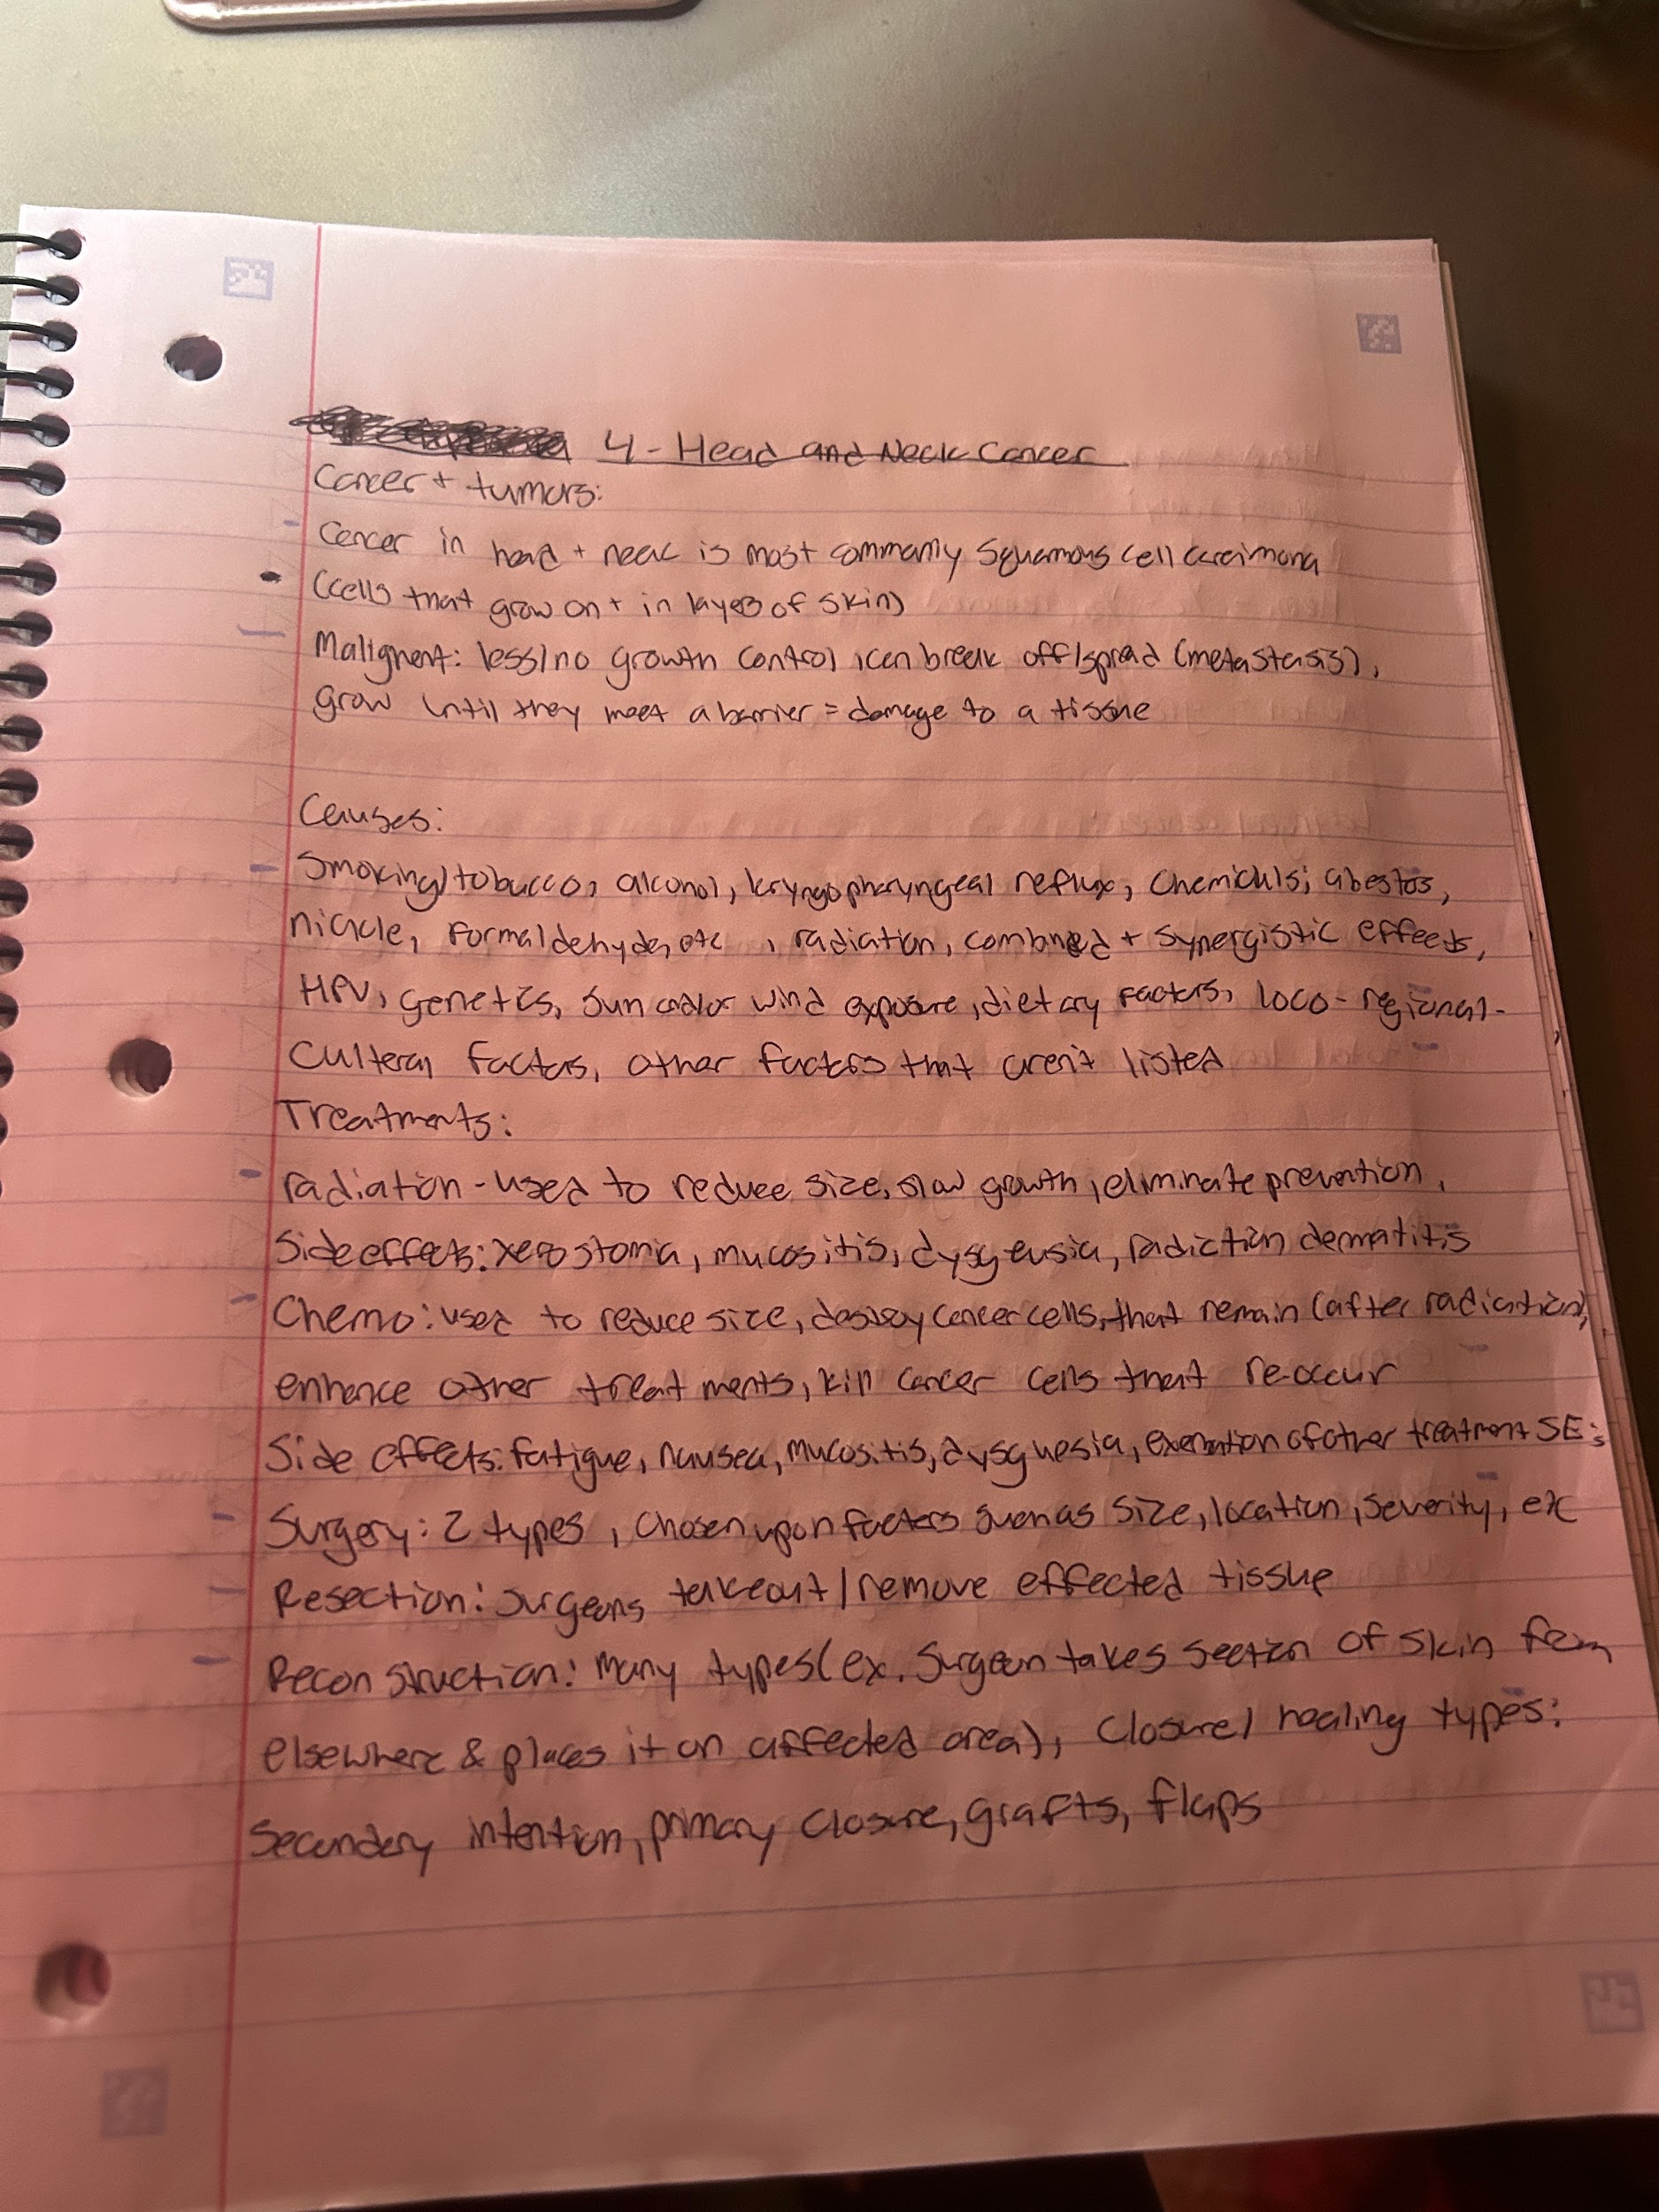 4 - Head and Neck Cancer
Cancer + tumors:
Cancer in head + neck is most commonly squamous cell carcimona
(cells that grow on + in layers of skin)
Malignent: less/no growth control, can break off/spread (metastasis),
grow until they meet a barrier = damage to a tissue
Causes:
Smoking/tobacco, alcohol, laryngopharyngeal reflux, chemicals; abestos,
nickle, formaldehyde, etc, radiation, combined + synergistic effects,
HPV, genetics, sun and/or wind exposure, dietary factors, loco-regional-
culteral factors, other factors that aren't listed
Treatments:
radiation - used to reduce size, slow growth, eliminate prevention,
Side effects: xerostomia, mucositis, dysgeusia, radiation dermatitis
Chemo: used to reduce size, destroy cancer cells that remain (after radiation),
enhance other treatments, kill cancer cells that re-occur
Side effects: fatigue, nausea, mucositis, dysguesia, of other treatment SE:
Surgery: 2 types, chosen upon factors such as size, location, severity, etc
Resection: surgeons takeout/remove effected tissue
Reconstruction: Many types (ex. Surgeon takes section of skin from
elsewhere & places it on affected area), Closure/healing types:
Secondary intention, primary closure, grafts, flaps